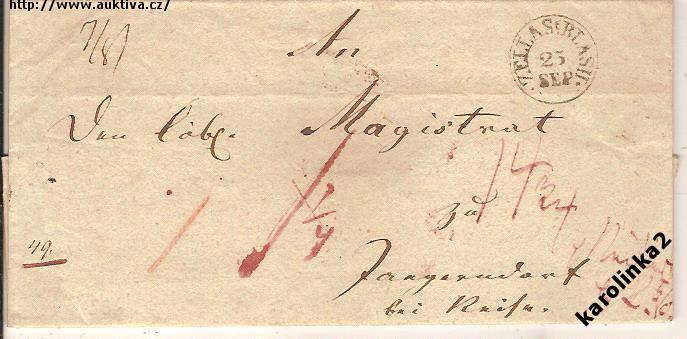 http://www.auktiva.cz/
7/8)
An
ZELLA St BLASII.
25
SEP.
Den löbl. Magistrat
zu
49.
Jaegerndorf
bei Neise.
karolinka2